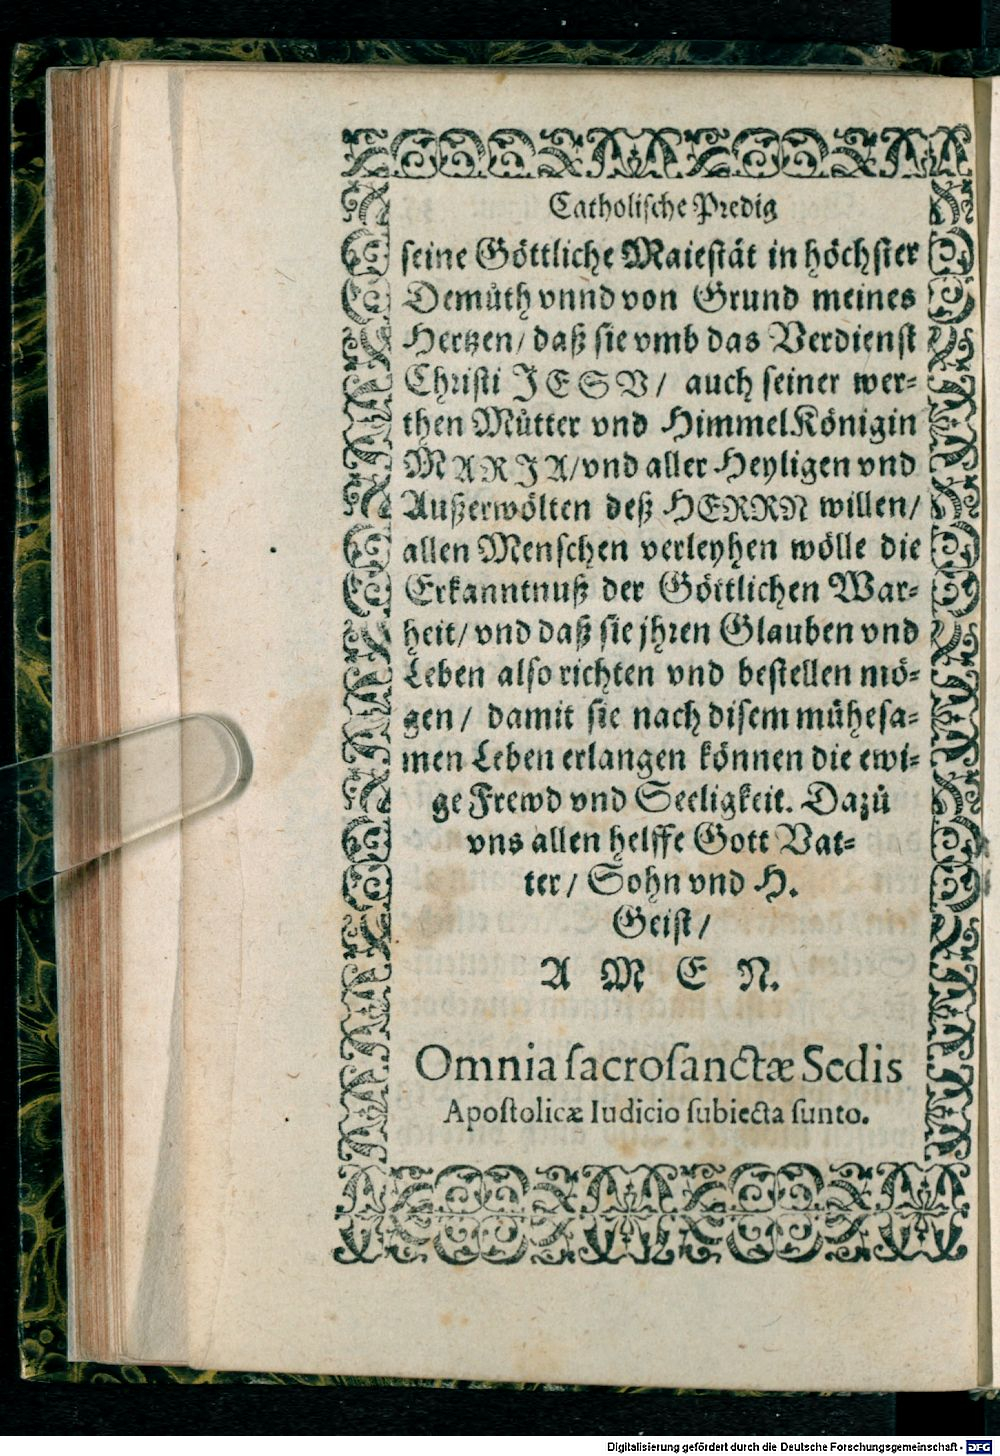 Catholische Predig
seine Göttliche Maiestät in höchster
Demůth vnnd von Grund meines
Hertzen/ daß sie vmb das Verdienst
Christi JESV/ auch seiner wer-
then Můtter vnd HimmelKönigin
MARJA/vnd aller Heyligen vnd
Außerwölten deß HERRN willen/
allen Menschen verleyhen wölle die
Erkanntnuß der Göttlichen War-
heit/ vnd daß sie jhren Glauben vnd
Leben also richten vnd bestellen mö-
gen/ damit sie nach disem mühesa-
men Leben erlangen können die ewi-
ge Frewd vnd Seeligkeit. Dazů
vns allen helffe Gott Vat-
ter/ Sohn vnd H.
Geist/
A M E N.
Omnia sacrosanctæ Sedis
Apostolicæ Iudicio subiecta sunto.
Digitalisierung gefördert durch die Deutsche Forschungsgemeinschaft - DFG